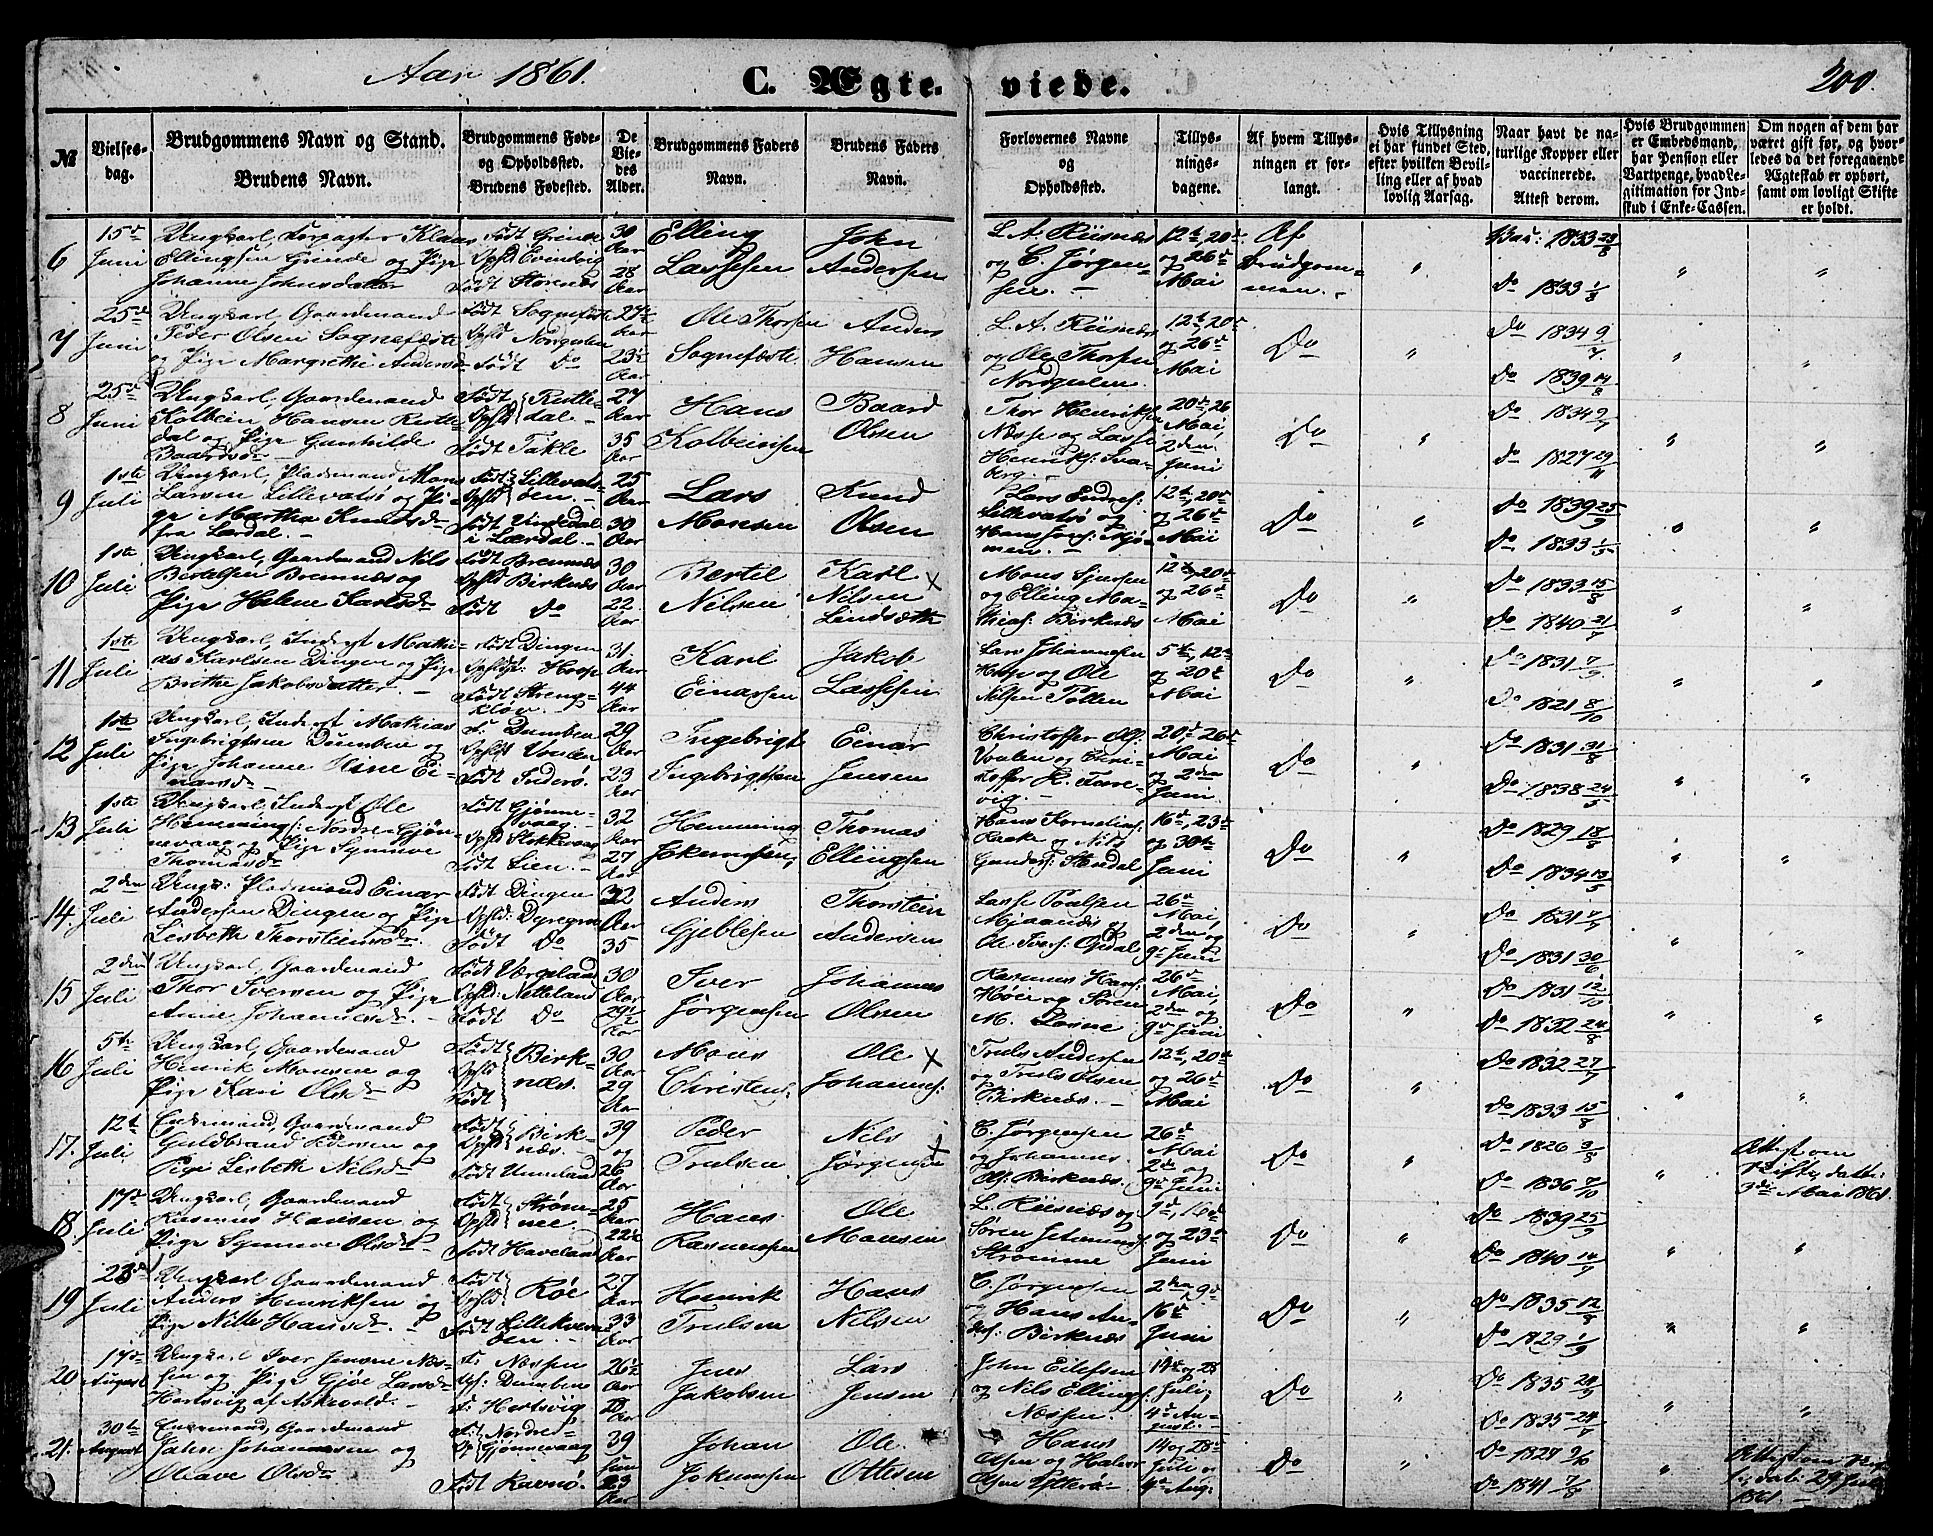 Aar 1861.
C. Ægteviede.
200.
No
Vielses-
dag.
Brudgommens Navn og Stand.
Brudens Navn.
Brudgommens Føde-
og Opholdssted.
Brudens Fødested.
De
Vie-
des
Alder.
Brudgommens Faders
Navn.
Brudens Faders
Navn.
Forlovernes Navne
og
Opholdssted.
Tillys-
nings-
dagene.
Af hvem Tillys-
ningen er for-
langt.
Hvis Tillysning
ei har fundet Sted,
efter hvilken Bevil-
ling eller af hvad
lovlig Aarsag.
Naar havt de na-
turlige Kopper eller
vaccinerede.
Attest derom.
Hvis Brudgommen
er Embedsmand,
har Pension eller
Vartpenge, hvad Le-
gitimation for Ind-
skud i Enke-Cassen.
Om nogen af dem har
været gift før, og hvor-
ledes da det foregaaende
Ægteskab er ophørt,
samt om lovligt Skifte
er holdt.
6
15de Juni
Ungkarl, Forpagter Klaus
Ellingsen Grinde og Pige
Johanne Johnsdatter
Født Grinde
Født Storenæs
30 Aar
28 Aar
Elling
Lassesen
John
Andersen
L. A. Riisnæs
og C. Jørgen-
sen. -
12te, 20de
og 26de
Mai
Af
Brudgom-
men. -
"
Vac: 1833 28/8
Do 1833 1/8
"
"
7
25de Juni
Ungkarl, Gaardmand
Peder Olsen Sognefæste
og Pige Margrethe Andersd
Født Sognefæste
Opst Nordgulen
Født Do
27½ Aar
23½ Aar
Ole Thorsen
Sognefæste
Anders
Hansen
L. A. Riisnæs
og Ole Thorsen
Nordgulen
12te, 20de
og 26de
Mai
Do
"
Do 1834 9/7
Do 1839 14/8
"
"
8
25de Juni
Ungkarl, Gaardmand
Kolbein Hansen Rutle-
dal og Pige Gunhilde
Baardsd
Født Opst Rutle-
dal
Født Takle
27 Aar
35 Aar
Hans
Kolbeinsen
Baard
Olsen
Thor Henriksen
Næsse og Lasse
Henriks: Sva-
berg
20de, 26
Mai,
2den
Juni
Do
"
Do 1834 9/7
Do 1827 29/11
"
"
9
1ste Juli
Ungkarl, Pladsmand Mons
Larsen Lillevatsø og Pi-
ge Martha Knudsd
fra Lærdal.
i Lærdal. -
25 Aar
30 Aar
Lars
Monsen
Knud
Olsen
Lars Endres:
Lillevatsø og
12te, 20de
og 26de
Mai
Do
"
Do 1839 25/9
Do 1833 1/5
"
"
10
1ste Juli
Ungkarl, Gaardmand Nils
Bertelsen Bremnæs og
Pige Helene Karlsd
Født Bremnæs
Opst Birknæs
Født Do
30 Aar
22 Aar
Bertel
Nilsen
Karl x
Nilsen
Lindsæth
Mons Sjursen
og Elling Ma-
thias: Birknæs
12te, 20de
og 26de
Mai
Do
"
Do 1833 15/8
Do 1840 21/7
"
"
11
1ste Juli
Ungkarl, Inderst Mathi-
as Karlsen Dingen og Pige
Brithe Jakobsdatter -
Født Dingen
31 Aar
44 Aar
Karl
Einarsen
Jakob
Lassesen
Lars Johannesen
og Ole
Nilsen Pollen
5te, 12te
og 20de
Mai
Do
"
Do 1831 7/9
Do 1821 8/10
"
"
12
1ste Juli
Ungkarl, Inderst Mathias
Ingebrigtsen Dumben og
Pige Johanne Oline Ei-
narsd
F: Dumben
Født Inders.
29 Aar
23 Aar
Ingebrigt
Ingebrigtsen
Einar
Jensen
Christoffer Ols:
20de 26de
Mai
og 2den
Juni
Do
"
Do 1831 31/8
Do 1838 24/5
"
"
13
1ste Juli
Ungkarl, Inderst Ole
Hemming: Nordre Gjøn-
nevaag og Pige Synnøve
Thomasd
Født Gjønne-
vaag
Født Lien. -
32 Aar
27 Aar
Hemming
Jokumsen
Thomas
Ellingsen
Hans Kornelius:
16de, 23de
og 30te
Juni
Do
"
Do 1829 18/8
Do 1834 13/5
"
"
14
2den Juli
Ungk: Pladsmand Einar
Andersen Dingen og Pige
Lisbeth Thorsteinsd.
Født Dingen
Født Do
32 Aar
35
Anders
Gjeblesen
Thorstein
Andersen
Lasse Poulsen
Ole Ivers: Opdal
26de
Mai,
2den og
9de Juni
Do
"
Do 1831 4/7
Do 1831 30/6
"
"
15
2den Juli
Ungkarl, Gaardmand
Thor Iversen og Pige
Anne Johannesd. -
Født Værgeland
Opst: Netteland
Født Do
30 Aar
29½ Aar
Iver
Jørgensen
Johannes
Olsen
Rasmus Hans:
Høie og Søren
26de
Mai,
2den og
9de Juni
Do
"
Do 1831 12/10
Do 1832 24/8
"
"
16
5te Juli
Ungkarl, Gaardmand
Henrik Monsen og
Pige Kari Olsd
Født Opst Født Birk-
næs.
30 Aar
29 Aar
Mons
Christens:
Ole x
Johannes:
Truls Andersen
og Truls Olsen
Birknæs. -
12te, 20de
og 26de
Mai
Do
"
Do 1832 27/9
Do 1833 15/8
"
"
17.
12te Juli
Enkemand, Gaardmand
Guldbrand Pedersen og
Pige Lisbeth Nilsd
Født Opst Birk-
næs.
39
og
26 Aar
Peder
Trulsen
Nils x
Jørgensen
C. Jørgensen
og Johannes
Ols: Birknæs.
26de
Mai
2de og
9de Juni
Do
"
Do 1826 3/8
Do 1836 7/10
"
Attest om
Skifte, dat:
3die Mai 1861.
18
17de Juli
Ungkarl, Gaardmand
Rasmus Hansen og
Pige Synnøve Olsd -
Født Opst Strøm-
me. -
Født Haveland
25 Aar
22½ Aar
Hans
Rasmussen
Ole
Monsen
L. Riisnæs og
Strømme
9de, 16de
og 23de
Juni
Do
"
Do 1839 25/9
Do 1840 14/9
"
"
19
23de Juli
Ungkarl Gaardmand
Anders Henriksen og
Pige Nille Hansd. -
Født Opst Røe
27 Aar
33 Aar
Henrik
Trulsen
Hans
Nilsen
C. Jørgensen
og Hans An-
ds: Birknæs
2den, 9de
16de
Juni
Do
"
Do 1835 12/8
Do 1829 1/9
"
"
20
17de August
Ungkarl Iver Jensen Næs-
sen og Pige Gjøe Larsd
Hertsvig af Askevold. -
F: Næssen
Ops: Dumben
F: Hertsvig
26½ Aar
Jens
Jakobsen
Lars
Jensen
John Eilefsen
og Nils Ellings:
Næssen.
14de og 28
Juli,
4de Au-
gust. -
Do
"
Do 1835 24/9
Do 1835 24/7
"
"
21.
30te August
Enkemand, Gaardmand
Jahn Johannessen og
Olave Olsd
F: Nordre
Op: Gjønnevaag
Født Ravnø.
39
23 Aar
Johan
Jokumsen
Ole.
Ottesen
Hans
Olsen og Halvor
Olsen Ytterø -
14 og 28de
Juli og
4de Aug:
Do
"
Do 1828 9/10
Do 1841 7/8
"
1861. -